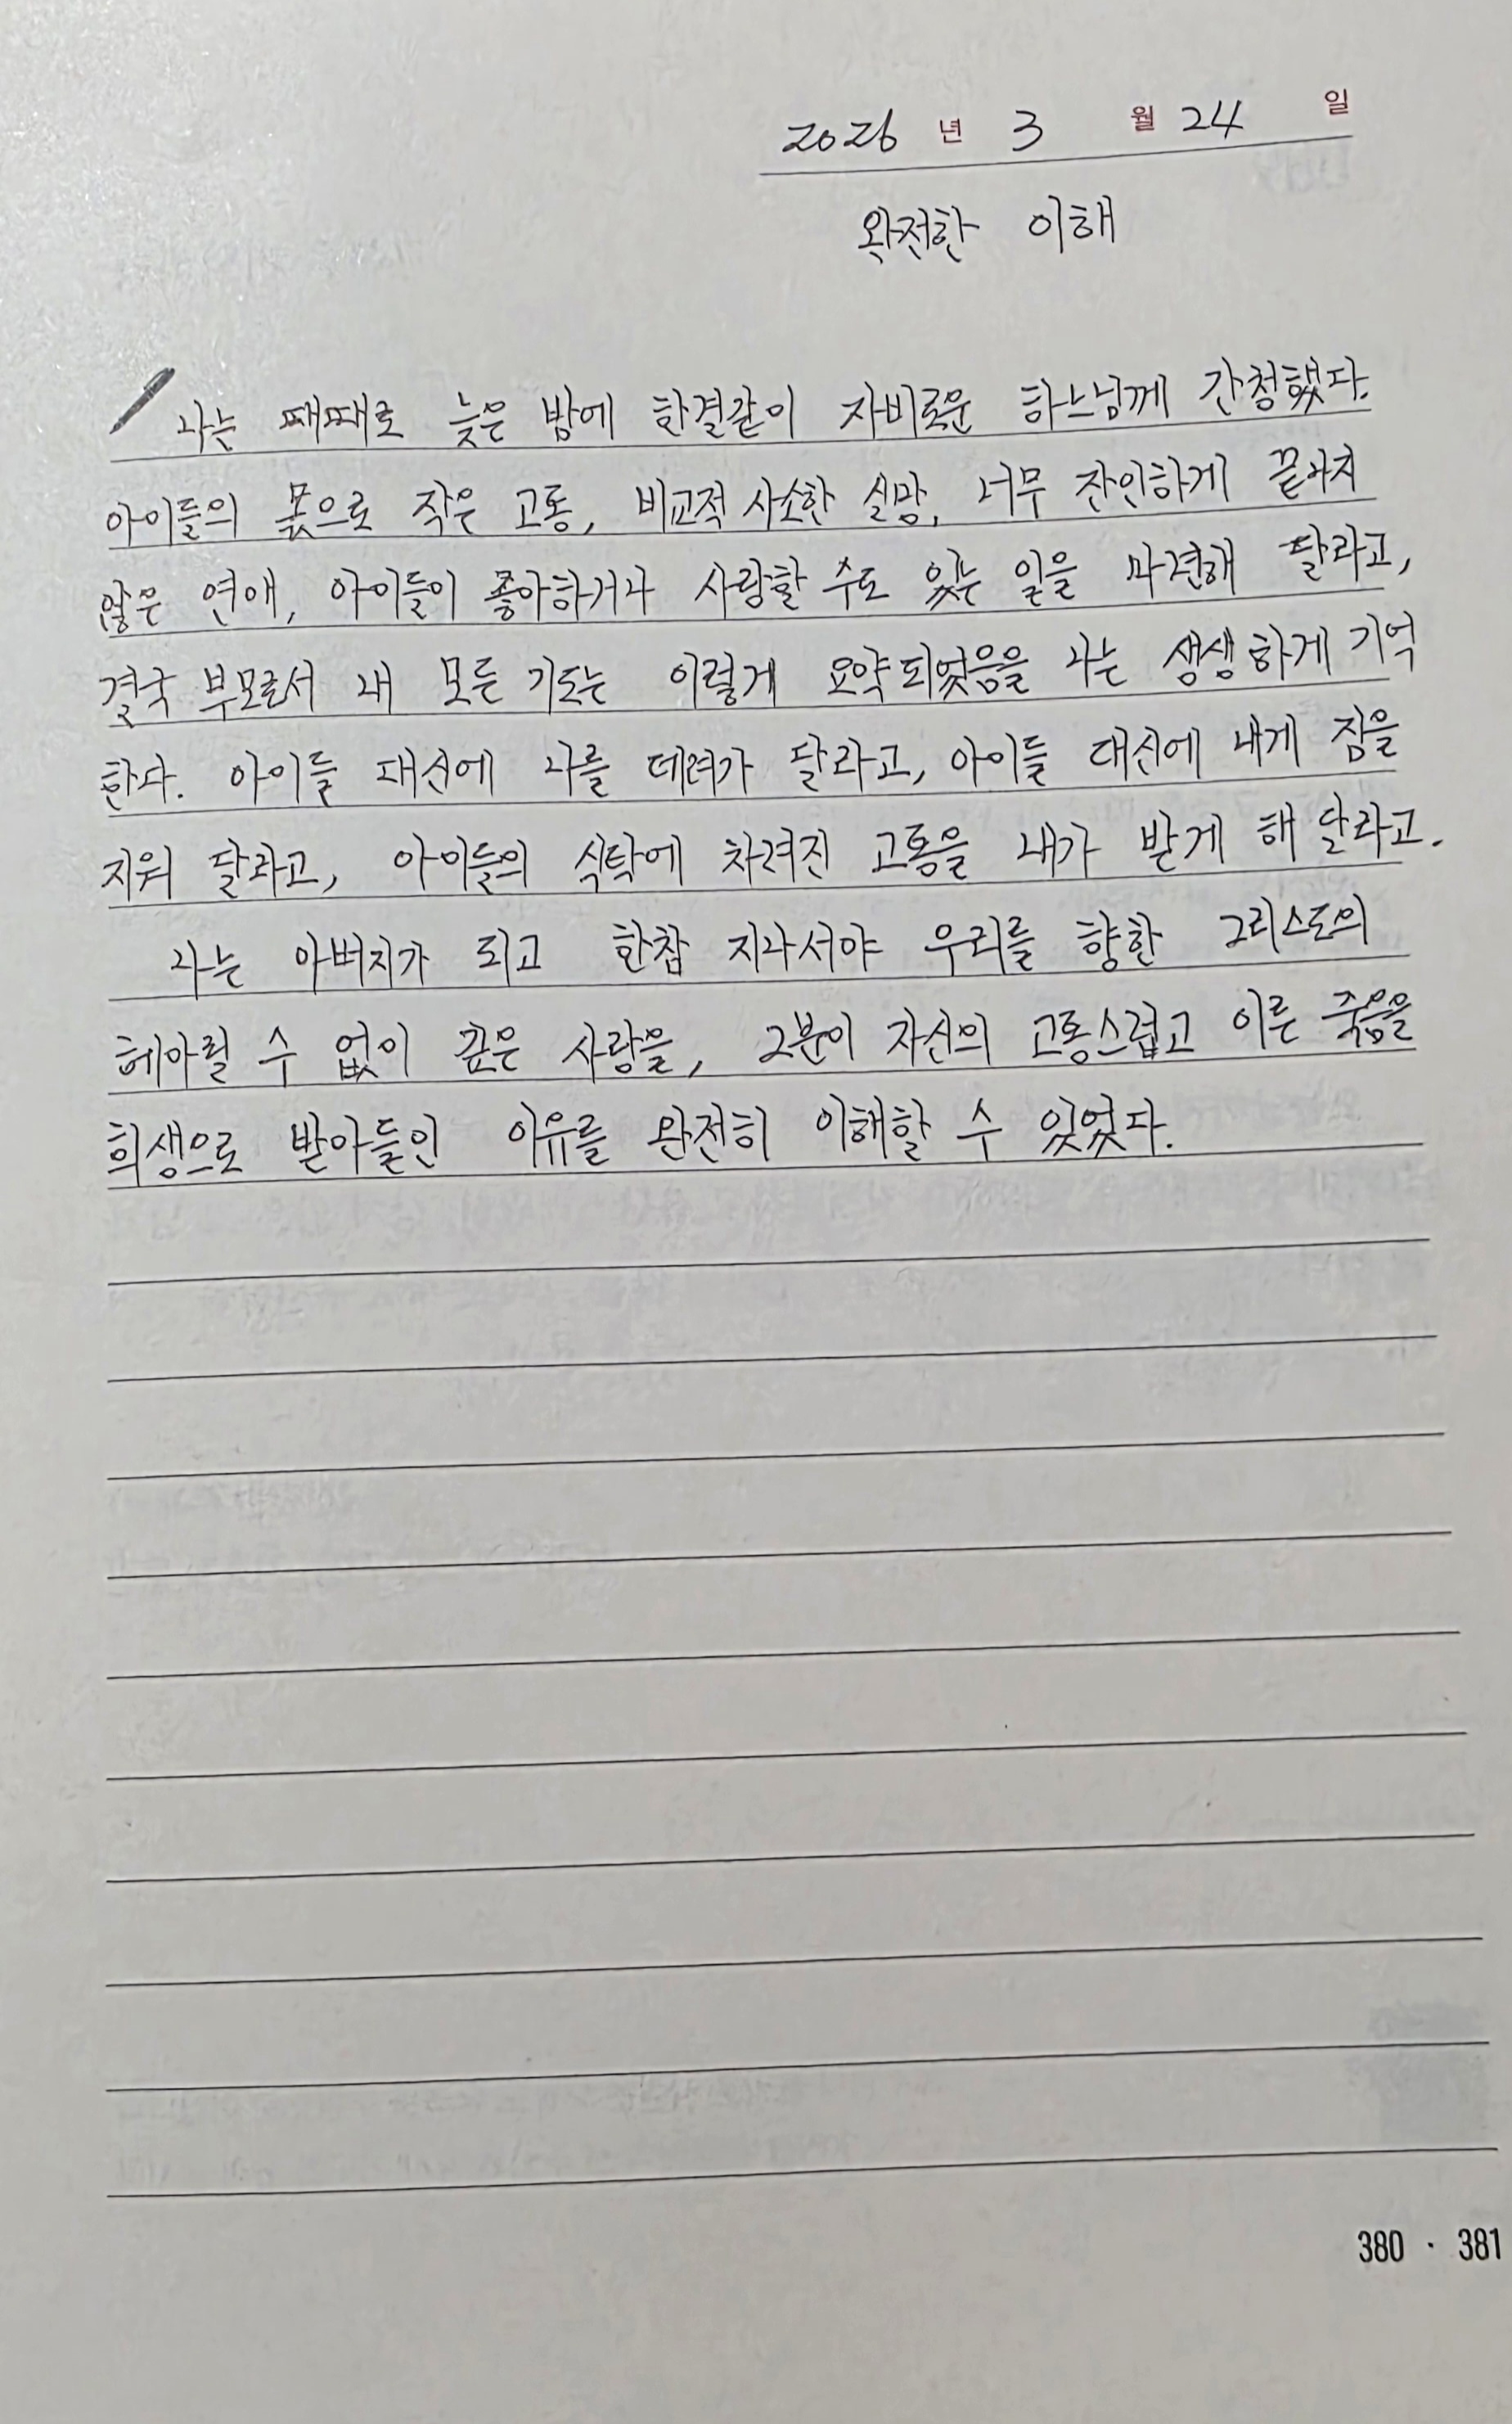 2026 년 3 월 24 일
완전한 이해
나는 때때로 늦은 밤에 한결같이 자비로운 하느님께 간청했다.
아이들의 몫으로 작은 고통, 비교적 사소한 실망, 너무 잔인하게 끝나지
않은 연애, 아이들이 좋아하거나 사랑할 수도 있는 일을 마련해 달라고,
결국 부모로서 내 모든 기도는 이렇게 요약되었음을 나는 생생하게 기억
한다. 아이들 대신에 나를 데려가 달라고, 아이들 대신에 내게 짐을
지워 달라고, 아이들의 식탁에 차려진 고통을 내가 받게 해 달라고.
나는 아버지가 되고 한참 지나서야 우리를 향한 그리스도의
헤아릴 수 없이 깊은 사랑을, 그분이 자신의 고통스럽고 이른 죽음을
희생으로 받아들인 이유를 완전히 이해할 수 있었다.
380 · 381